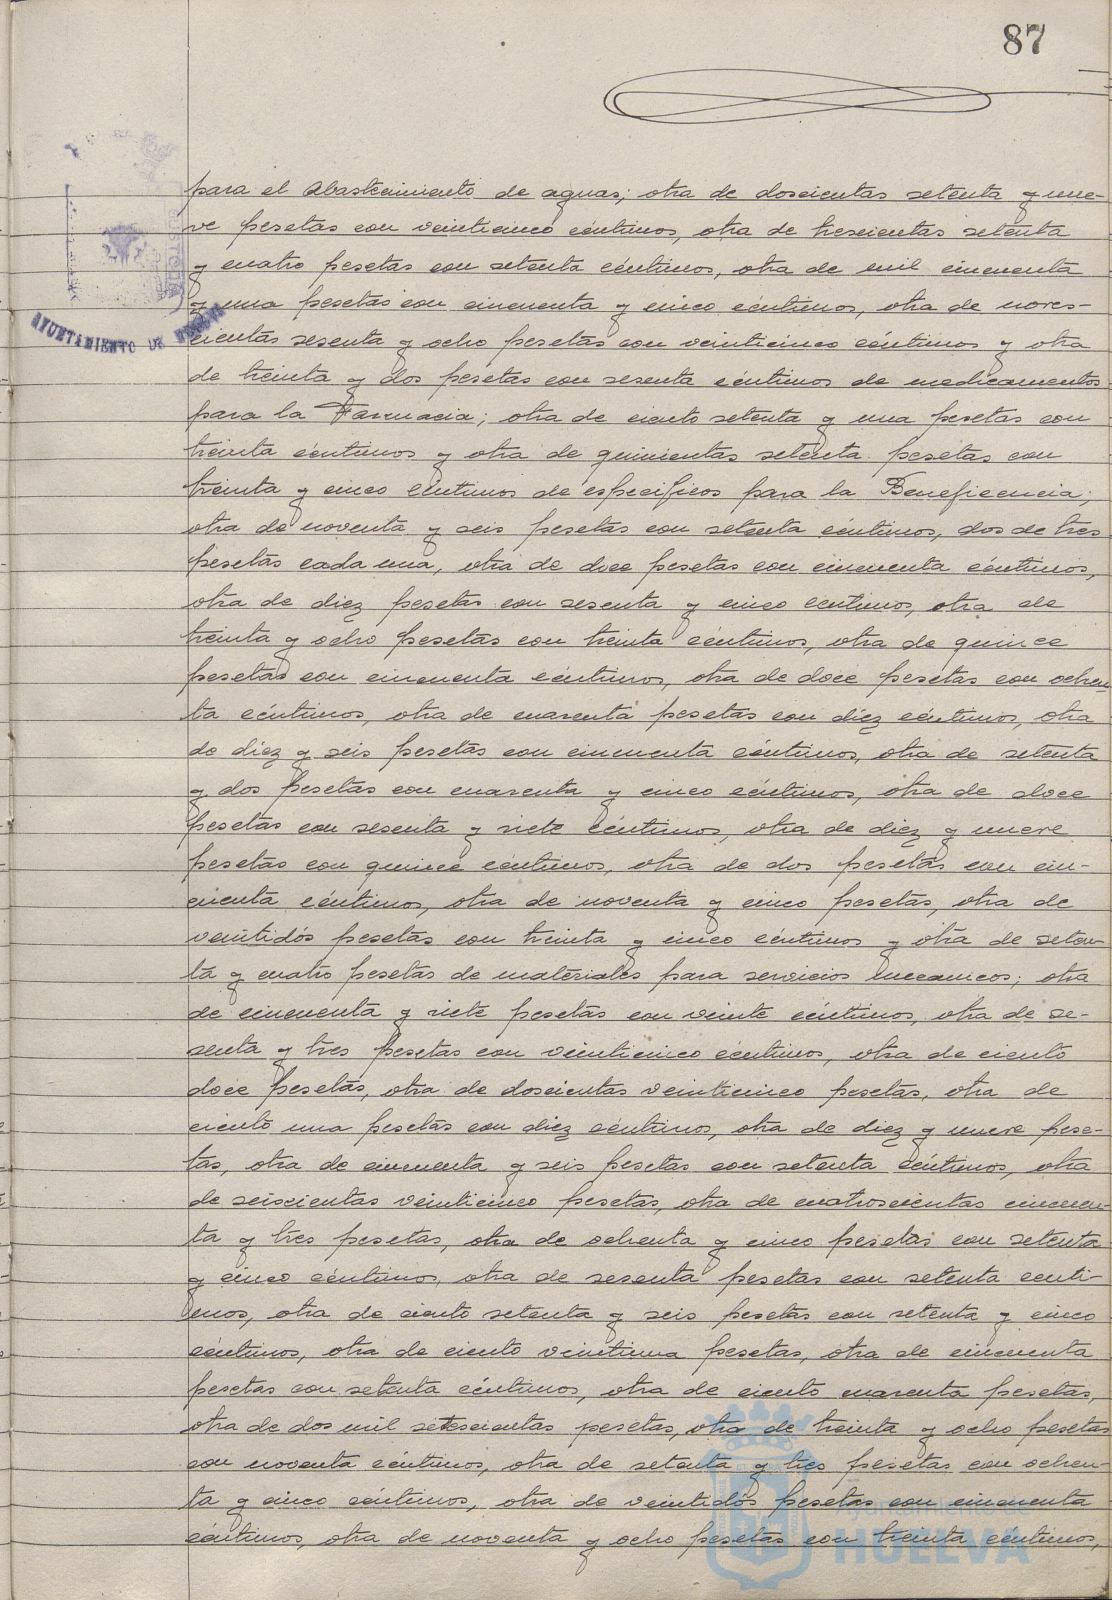 87
para el Abastecimiento de aguas; otra de doscientas setenta y nue-
ve pesetas con veinticinco céntimos, otra de trescientas setenta
y cuatro pesetas con setenta céntimos, otra de mil cincuenta
y una pesetas con cincuenta y cinco céntimos, otra de noves-
cientas sesenta y ocho pesetas con veinticinco céntimos y otra
de treinta y dos pesetas con sesenta céntimos de medicamentos
para la Farmacia; otra de ciento setenta y una pesetas con
treinta céntimos y otra de quinientas setenta pesetas con
treinta y cinco céntimos de específicos para la Beneficencia;
otra de noventa y seis pesetas con setenta céntimos, dos de tres
pesetas cada una, otra de doce pesetas con cincuenta céntimos,
otra de diez pesetas con sesenta y cinco centimos, otra de
treinta y ocho pesetas con treinta céntimos, otra de quince
pesetas con cincuenta céntimos, otra de doce pesetas con ochen
ta céntimos, otra de cuarenta pesetas con diez céntimos, otra
de diez y seis pesetas con cincuenta céntimos, otra de setenta
y dos pesetas con cuarenta y cinco céntimos, otra de doce
pesetas con sesenta y siete céntimos, otra de diez y nueve
pesetas con quince céntimos, otra de dos pesetas con cin-
cuenta céntimos, otra de noventa y cinco pesetas, otra de
veintidós pesetas con treinta y cinco céntimos y otra de seten-
ta y cuatro pesetas de materiales para servicios mecanicos; otra
de cincuenta y siete pesetas con veinte céntimos, otra de se-
senta y tres pesetas con veinticinco céntimos, otra de ciento
doce pesetas, otra de doscientas veinticinco pesetas, otra de
ciento una pesetas con diez céntimos, otra de diez y nueve pese-
tas, otra de cincuenta y seis pesetas con setenta céntimos, otra
de seiscientas veinticinco pesetas, otra de cuatroscientas cincuen-
ta y tres pesetas, otra de ochenta y cinco pesetas con setenta
y cinco céntimos, otra de sesenta pesetas con setenta centi-
mos, otra de ciento setenta y seis pesetas con setenta y cinco
céntimos, otra de ciento veintiuna pesetas, otra de cincuenta
pesetas con setenta céntimos, otra de ciento cuarenta pesetas,
otra de dos mil setescientas pesetas, otra de treinta y ocho pesetas
con noventa céntimos, otra de setenta y tres pesetas con ochen-
ta y cinco céntimos, otra de veintidós pesetas con cincuenta
céntimos, otra de noventa y ocho pesetas con treinta céntimos,
AYUNTAMIENTO DE HUELVA
Ayuntamiento de
HUELVA